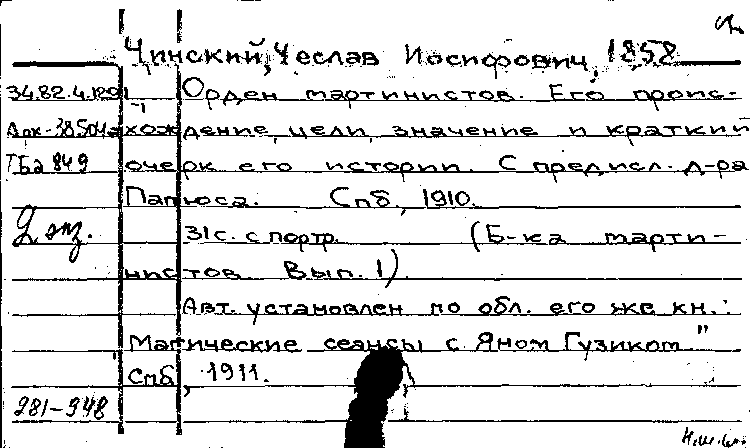 Чинский, Чеслав Иосифович, 1858
34.82.4.1291 Орден мартинистов. Его проис-
хождение, цели, значение и краткий
ТБа 849 очерк его истории. С предисл. д-ра
Папюса. Спб., 1910.
2 экз. 31 с. с портр. (Б-ка марти-
нистов. Вып. 1)
Авт. установлен по обл. его же кн.:
Магические сеансы с Яном Гузиком"
Спб, 1911.
281-948